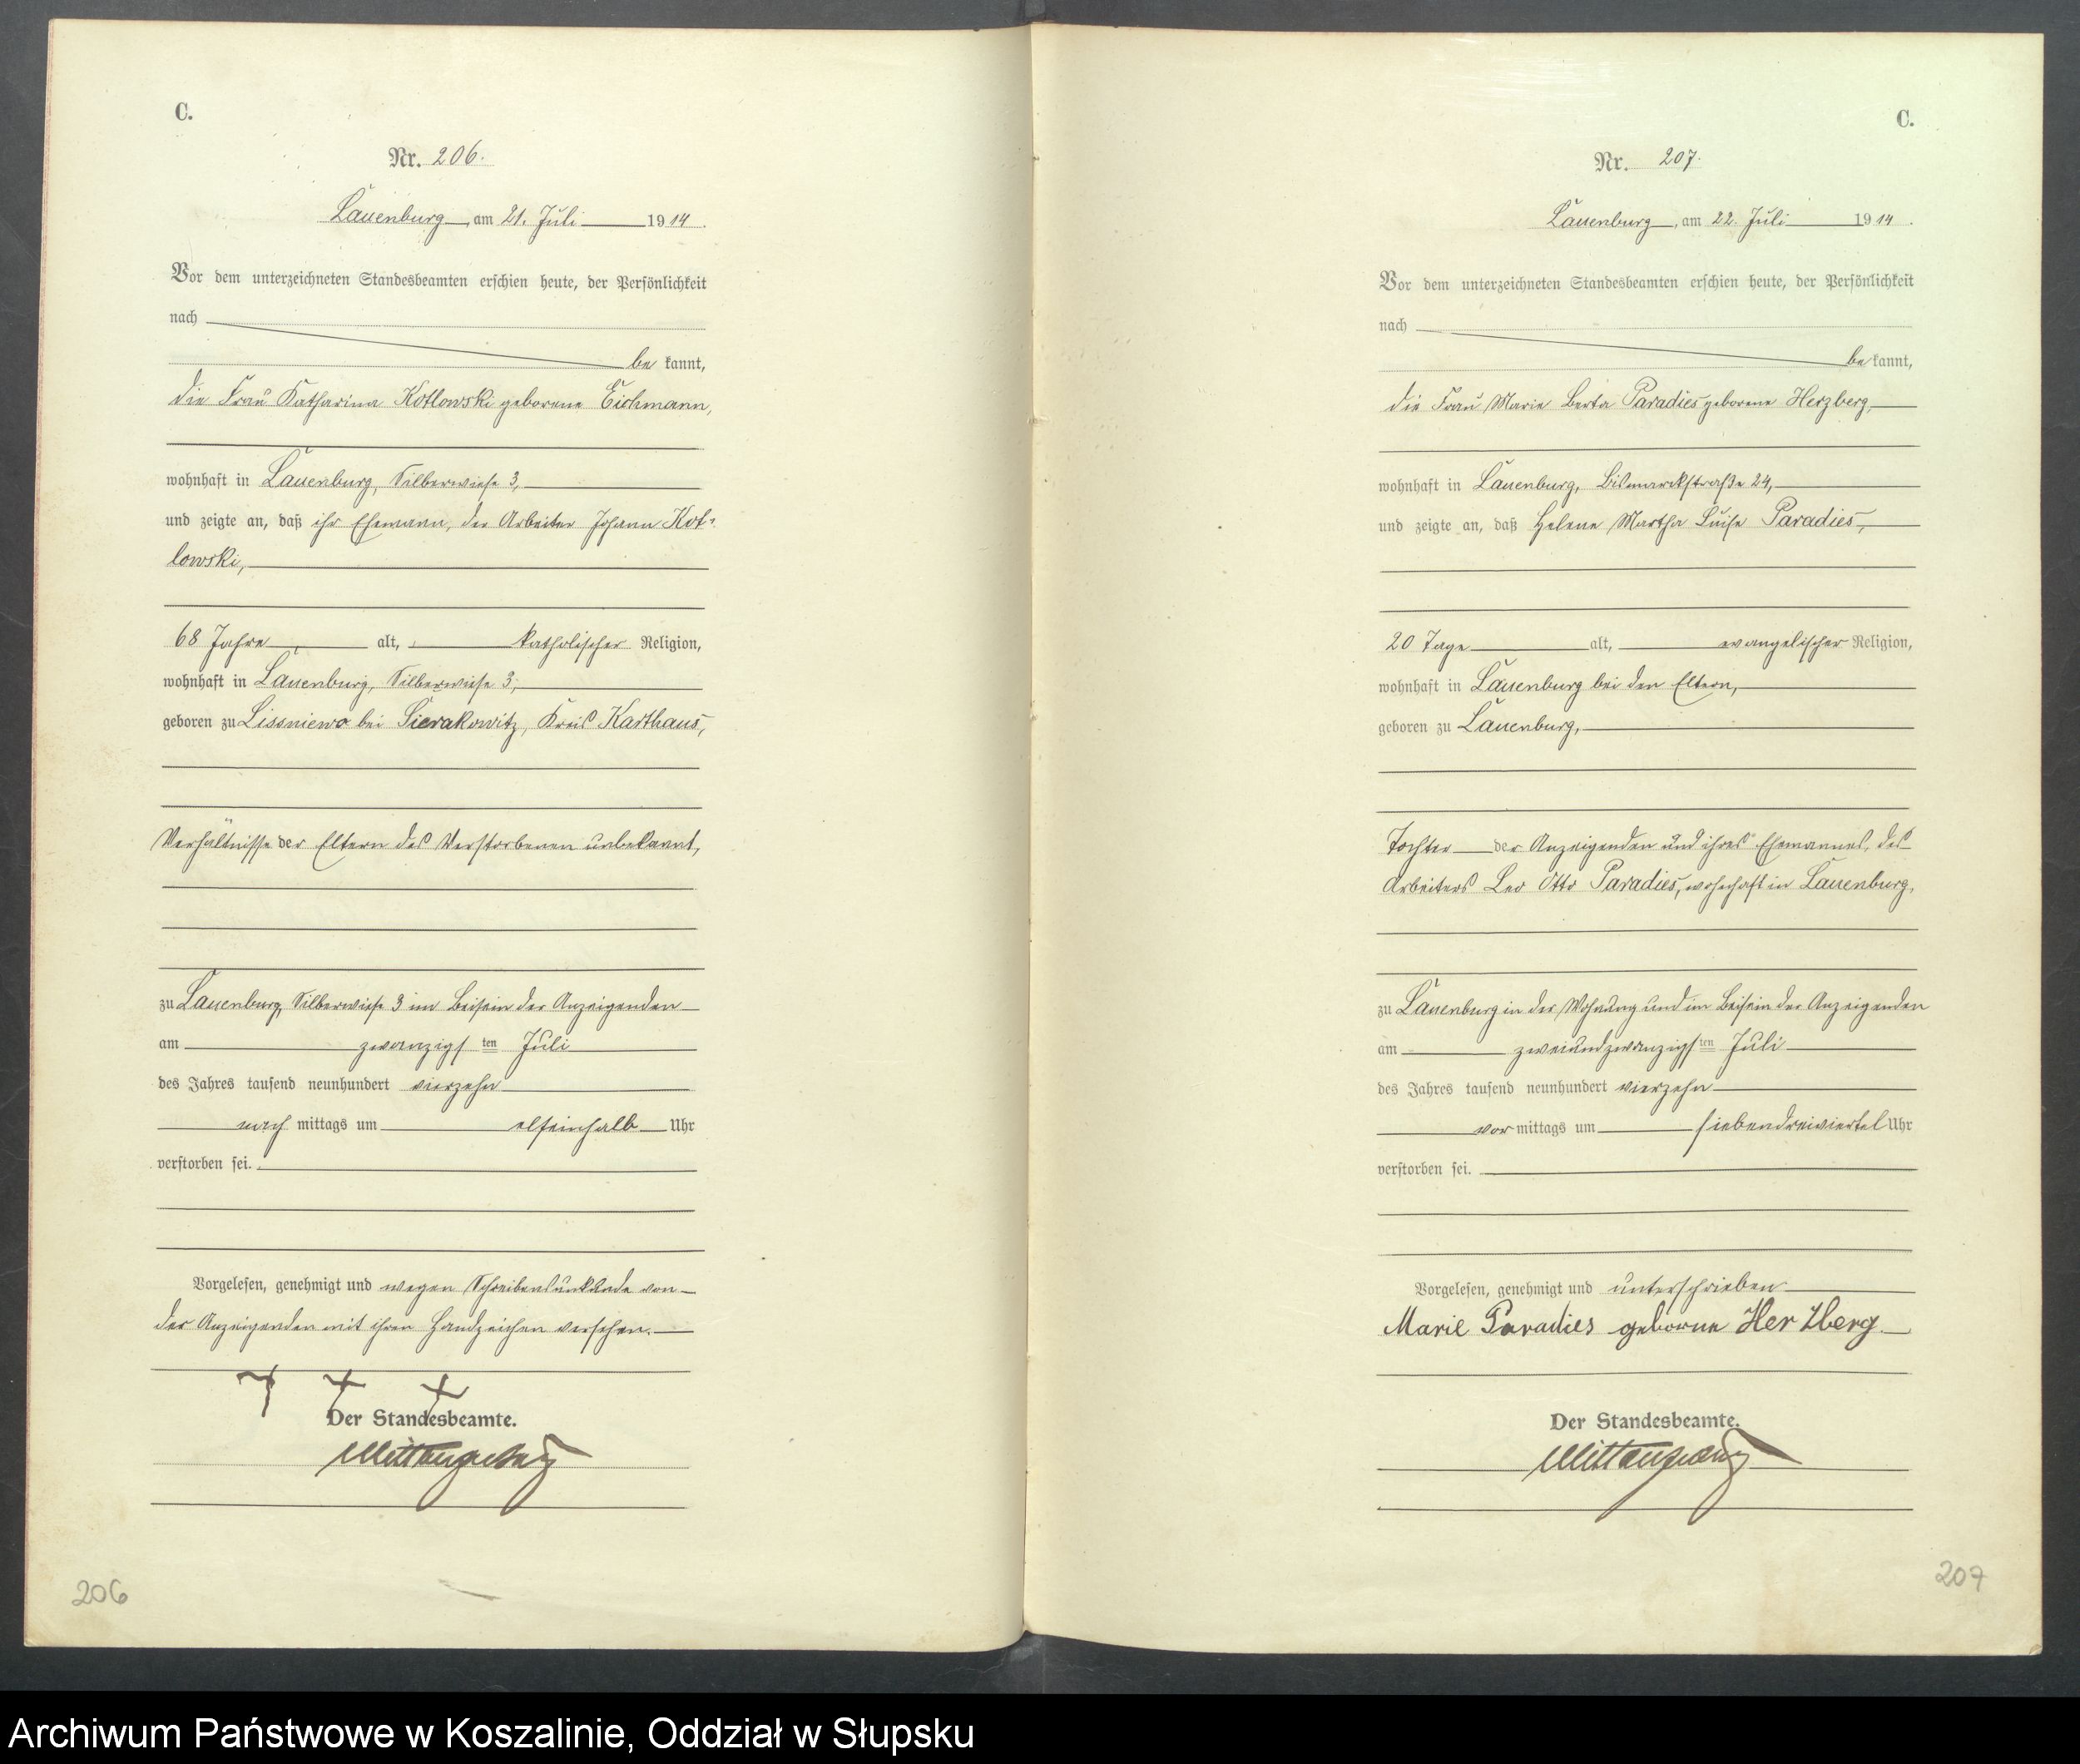 C.
Nr. 206.
Lauenburg, am 21. Juli 1914.
Vor dem unterzeichneten Standesbeamten erschien heute, der Persönlichkeit
nach
be kannt,
die Frau Katharina Kotlowski geborene Eichmann,
wohnhaft in Lauenburg, Silberwiese 3,
und zeigte an, daß ihr Ehemann, der Arbeiter Johann Kot-
lowski,
68 Jahre alt, katholischer Religion,
wohnhaft in Lauenburg, Silberwiese 3,
geboren zu Lissniewo bei Sierakowitz, Kreis Karthaus,
Verhältnisse der Eltern des Verstorbenen unbekannt,
zu Lauenburg, Silberwiese 3 im Beisein der Anzeigenden
am zwanzigsten Juli
des Jahres tausend neunhundert vierzehn
nach mittags um elfeinhalb Uhr
verstorben sei.
Vorgelesen, genehmigt und wegen Schreibensunkunde von
der Anzeigenden mit ihren Handzeichen versehen.
+ + +
Der Standesbeamte.
206
C.
Nr. 207.
Lauenburg, am 22. Juli 1914.
Vor dem unterzeichneten Standesbeamten erschien heute, der Persönlichkeit
nach
be kannt,
die Frau Marie Berta Paradies geborene Herzberg,
wohnhaft in Lauenburg, Bismarckstraße 24,
und zeigte an, daß Helene Martha Luise Paradies,
20 Tage alt, evangelischer Religion,
wohnhaft in Lauenburg bei den Eltern,
geboren zu Lauenburg,
Tochter der Anzeigenden und ihres Ehemannes, des
Arbeiters Leo Otto Paradies, wohnhaft in Lauenburg,
zu Lauenburg in der Wohnung und im Beisein der Anzeigenden
am zweiundzwanzigsten Juli
des Jahres tausend neunhundert vierzehn
vor mittags um siebendreiviertel Uhr
verstorben sei.
Vorgelesen, genehmigt und unterschrieben
Marie Paradies geborne Herzberg.
Der Standesbeamte.
207
Archiwum Państwowe w Koszalinie, Oddział w Słupsku